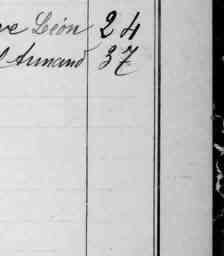 Léon 24
Armand 37